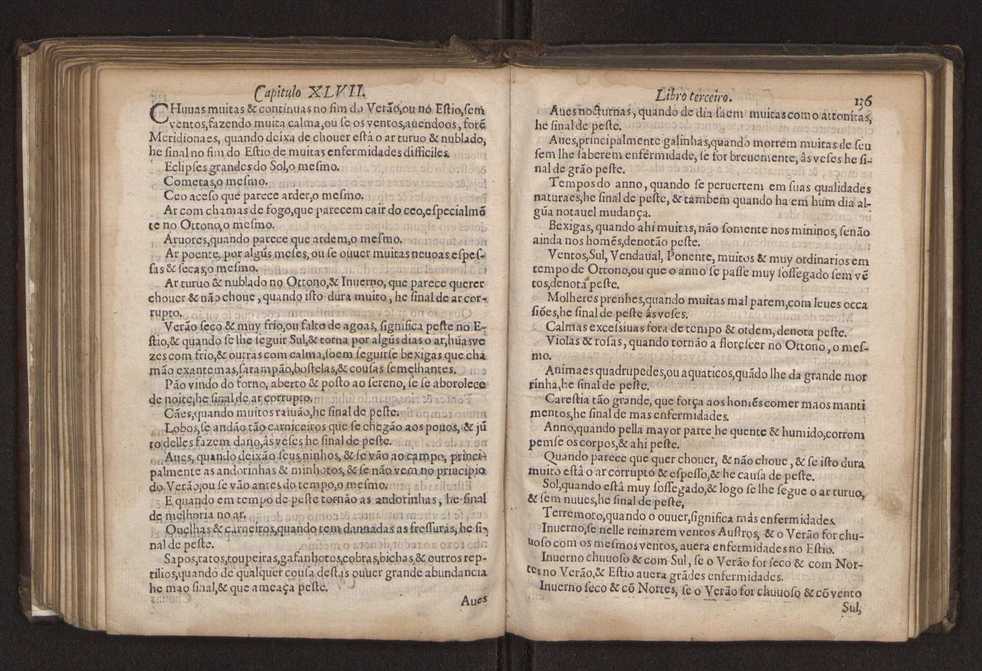 Capitulo XLVII.
CHuuas muitas & continuas no fim do Verão,ou no Estio,sem
ventos,fazendo muita calma,ou se os ventos,auendoos, forẽ
Meridionaes, quando deixa de chouer està o ar turuo & nublado,
he sinal no fim do Estio de muitas enfermidades difficiles.
Eclipses grandes do Sol,o mesmo.
Cometas,o mesmo.
Ceo aceso que parece arder,o mesmo.
Ar com chamas de fogo,que parecem cair do ceo,especialmẽ
te no Ottono,o mesmo.
Aruores,quando parece que ardem,o mesmo.
Ar poente, por algũs meses, ou se ouuer muitas neuoas espes-
sas & secas,o mesmo.
Ar turuo & nublado no Ottono,& Inuerno, que parece querer
chouer & não choue, quando isto dura muito, he sinal de ar cor-
rupto.
Verão seco & muy frio,ou falto de agoas, significa peste no E-
stio,& quando se lhe seguir Sul,& torna por algũs dias o ar,hũas ve
zes com frio,& outras com calma,soem seguirse bexigas que cha
mão exantemas,sarampão,bostelas,& cousas semelhantes.
Pão vindo do forno, aberto & posto ao sereno, se se aborolece
de noite,he sinal de ar corrupto.
Cães,quando muitos raiuão,he sinal de peste.
Lobos,se andão tão carniceiros que se chegão aos pouos, & jũ
to delles fazem dano,às veses he sinal de peste.
Aues, quando deixão seus ninhos, & se vão ao campo, princi-
palmente as andorinhas & minhotos, & se não vem no principio
do Verão,ou se vão antes do tempo,o mesmo.
E quando em tempo de peste tornão as andorinhas, he sinal
de melhoria no ar.
Ouelhas & carneiros,quando tem dannadas as fressuras,he si-
nal de peste.
Sapos,ratos,toupeiras,gafanhotos,cobras,bichas & outros rep-
tilios,quando de qualquer cousa destas ouuer grande abundancia
he mao sinal,& que ameaça peste.
Aues
Libro terceiro.
136
Aues nocturnas, quando de dia saem muitas como attonitas,
he sinal de peste.
Aues,principalmente galinhas,quando morrem muitas de seu
sem lhe saberem enfermidade, se for breuemente, às veses he si-
nal de grão peste.
Tempos do anno, quando se peruertem em suas qualidades
naturaes,he sinal de peste, & tambem quando ha em hum dia al-
gũa notauel mudança.
Bexigas, quando ahi muitas, não somente nos mininos, senão
ainda nos homẽs,denotão peste.
Ventos,Sul, Vendaual, Ponente, muitos & muy ordinarios em
tempo de Ottono,ou que o anno se passe muy sossegado sem vẽ
tos,denota peste.
Molheres prenhes,quando muitas mal parem,com leues occa
siões,he sinal de peste às veses.
Calmas excessiuas fora de tempo & ordem, denota peste.
Violas & rosas, quando tornão a florescer no Ottono, o mes-
mo.
Animaes quadrupedes,ou aquaticos,quãdo lhe da grande mor
rinha,he sinal de peste.
Carestia tão grande, que força aos homẽs comer maos manti
mentos,he sinal de mas enfermidades.
Anno,quando pella mayor parte he quente & humido,corrom
pemse os corpos,& ahi peste.
Quando parece que quer chouer, & não choue, & se isto dura
muito està o ar corrupto & espesso,& he causa de peste.
Sol,quando està muy sossegado,& logo se lhe segue o ar turuo,
& sem nuues,he sinal de peste,
Terremoto,quando o ouuer,significa màs enfermidades.
Inuerno,se nelle reinarem ventos Austros, & o Verão for chu-
uoso com os mesmos ventos, auera enfermidades no Estio.
Inuerno chuuoso & com Sul, se o Verão for seco & com Nor-
tes no Verão,& Estio auera grãdes enfermidades.
Inuerno seco & cõ Nortes, se o Verão for chuuoso & cõ vento
Sul,